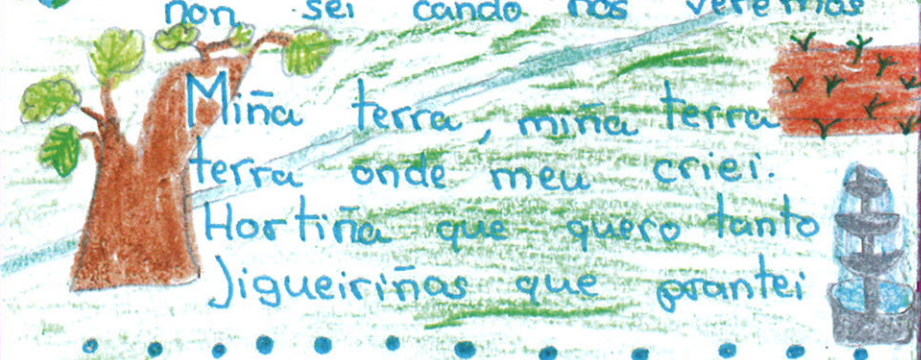 non sei cando nos veremos
Miña terra, miña terra
terra onde meu criei.
Hortiña que quero tanto
Jigueiriñas que prantei